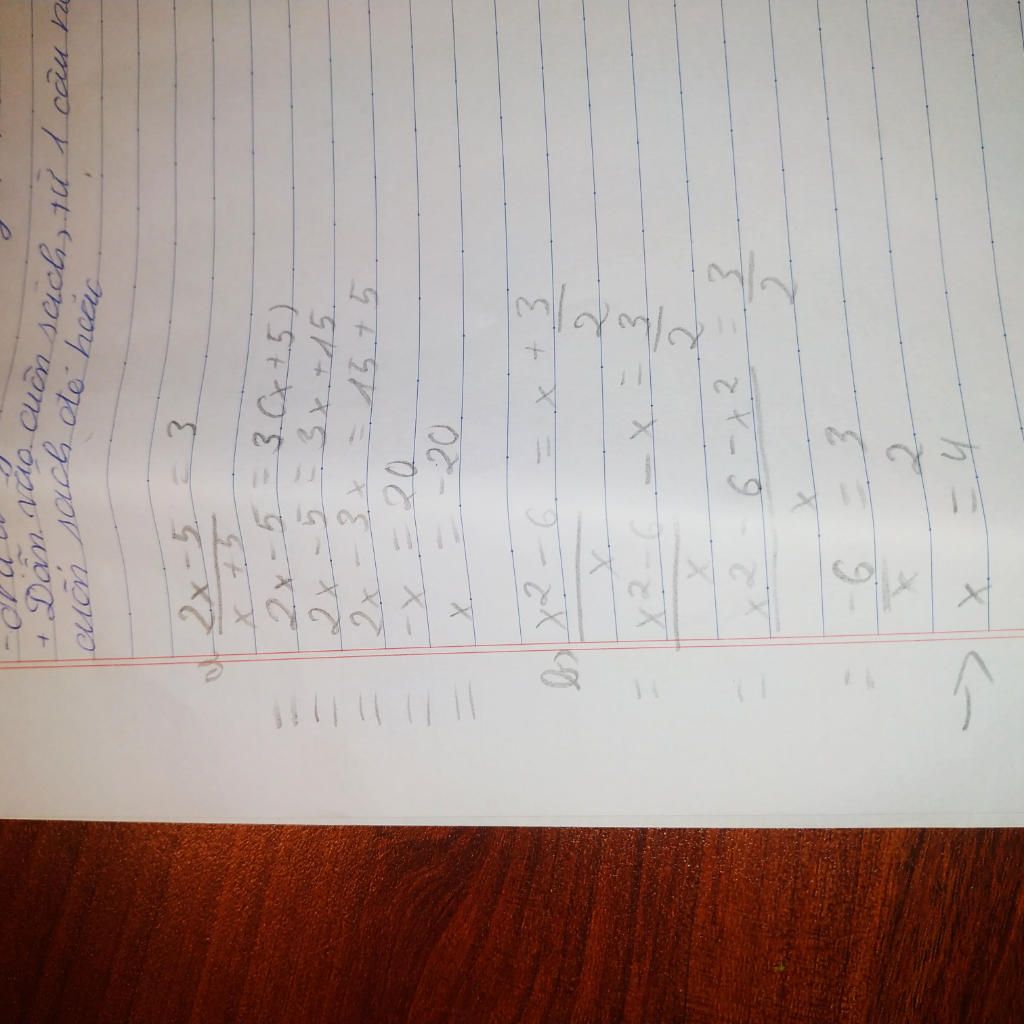 + Dẫn vào cuốn sách, từ 1 câu
cuốn sách đó hoặc
a) 2x - 5 / x + 5 = 3
= 2x - 5 = 3(x + 5)
= 2x - 5 = 3x + 15
= 2x - 3x = 15 + 5
= -x = 20
= x = -20
b) x2 - 6 / x = x + 3/2
= x2 - 6 / x - x = 3/2
= x2 - 6 - x2 / x = 3/2
= -6/x = 3/2
-> x = 4